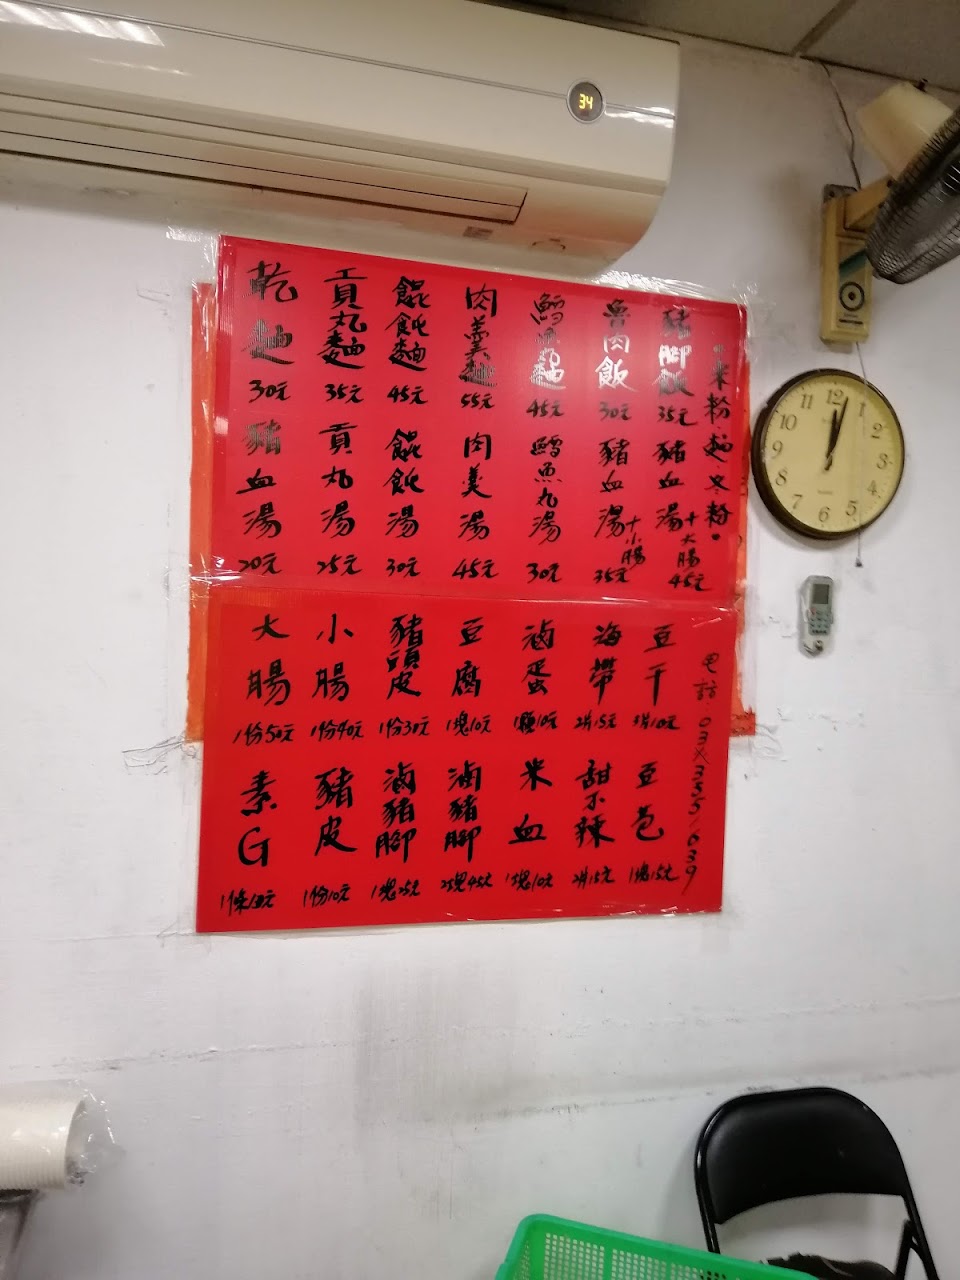 34
米粉.麵.冬粉。
豬腳飯 35元
魯肉飯 30元
鱈魚丸麵 45元
肉羹麵 55元
餛飩麵 45元
貢丸麵 35元
乾麵 30元
豬血湯+大腸 45元
豬血湯+小腸 35元
鱈魚丸湯 30元
肉羹湯 45元
餛飩湯 30元
貢丸湯 25元
豬血湯 20元
電話:03
豆干 3片10元
海帶 2片15元
滷蛋 1顆10元
豆腐 1塊10元
豬頭皮 1份30元
小腸 1份40元
大腸 1份50元
豆包 1塊15元
甜不辣 2片15元
米血 1塊10元
滷豬腳 2塊45元
滷豬腳 1塊25元
豬皮 1份10元
素G 1條
12 1 2 3 4 5 6 7 8 9 10 11